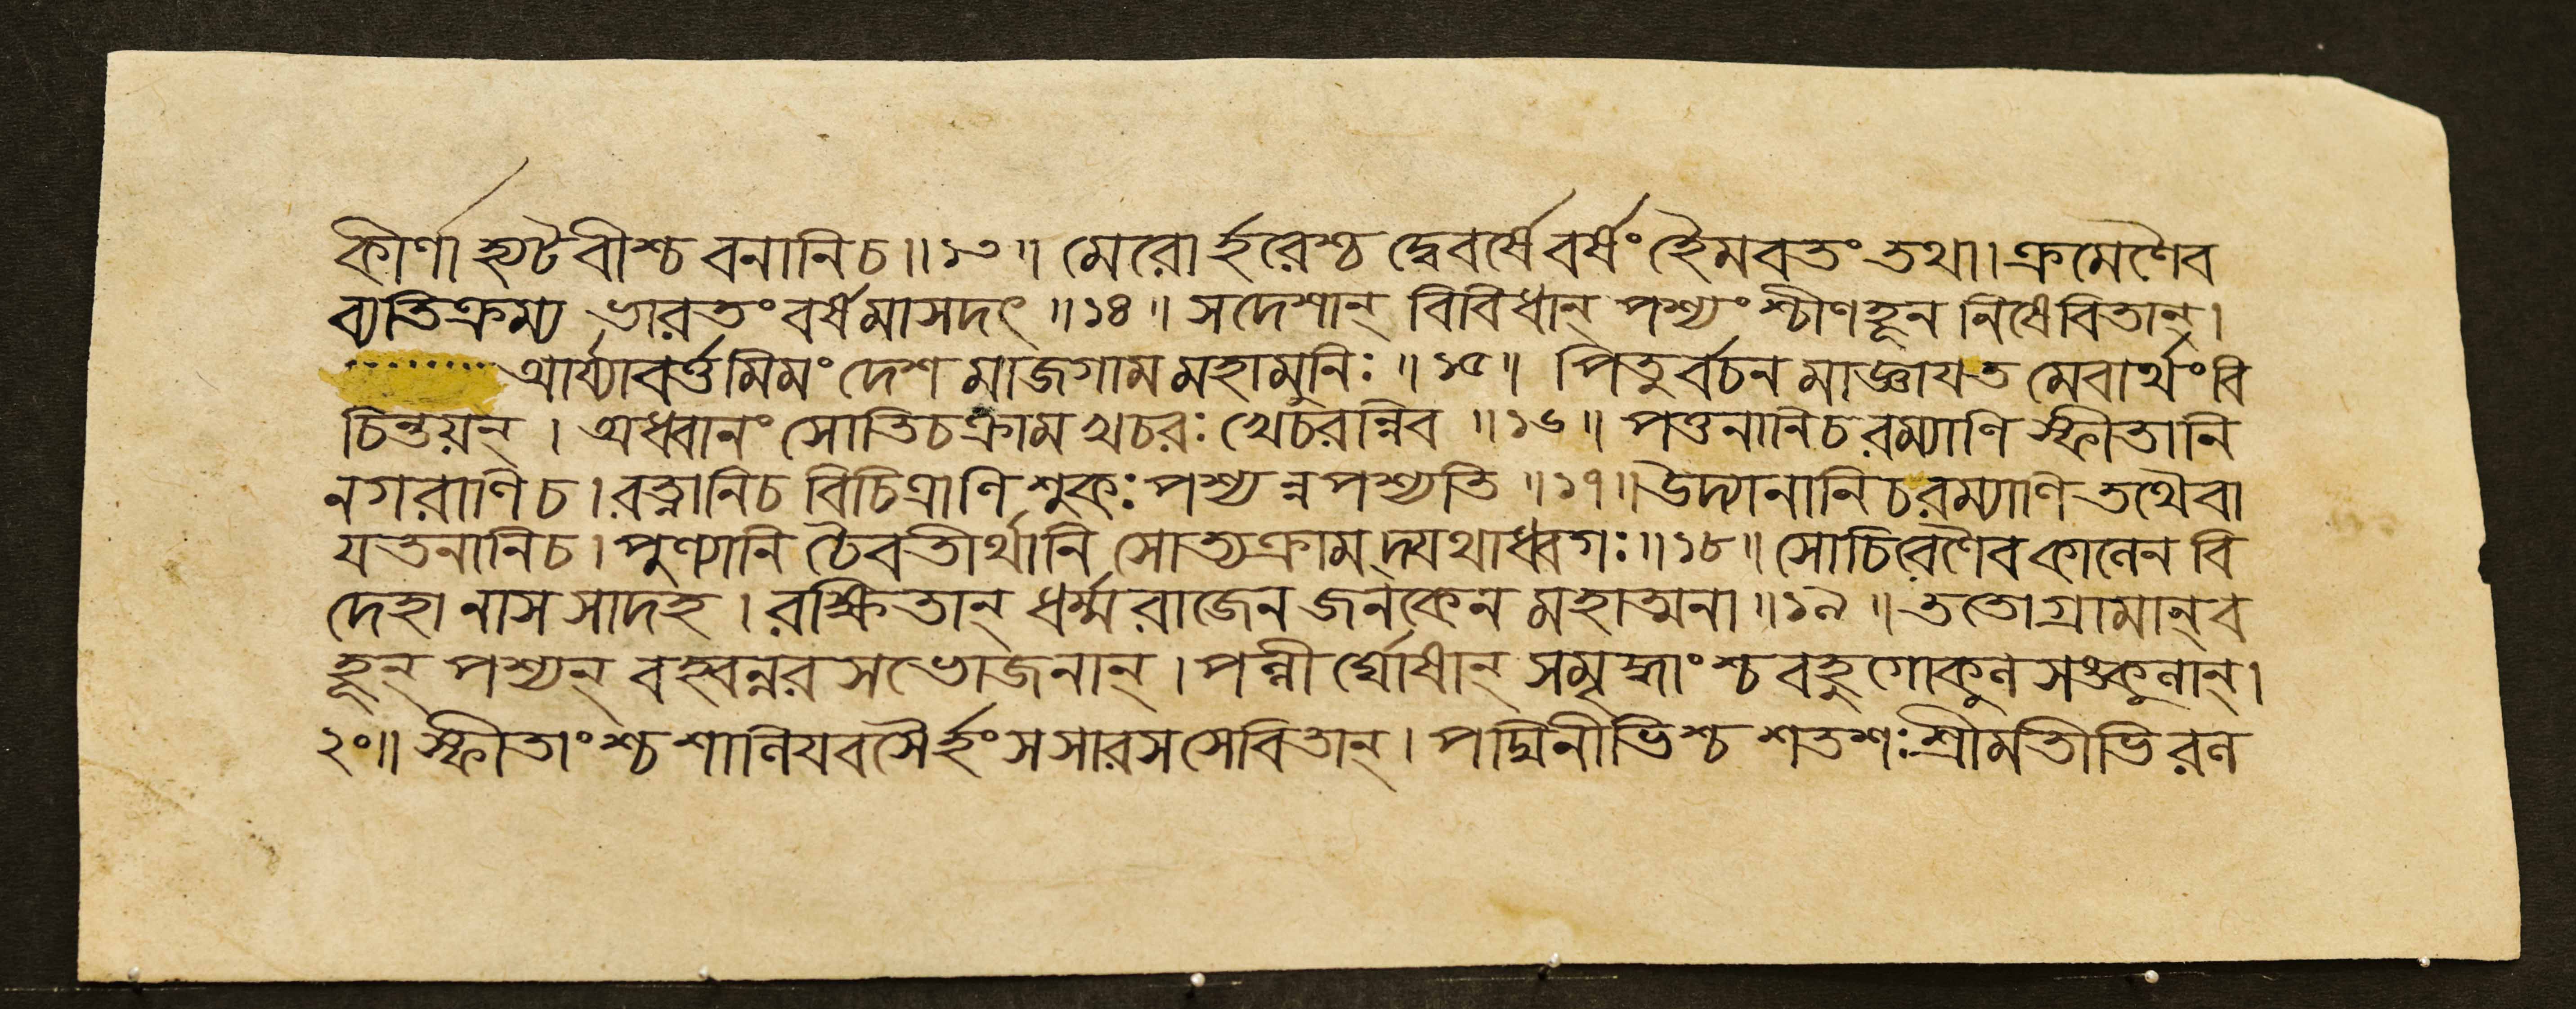 কীর্ণাহ্যটবীশ্চ বনানিচ॥১৩॥ মেরোর্হরেশ্চ দ্বেবর্ষে বর্ষং হৈমবতং তথা। ক্রমেণৈব
ব্যতিক্রম্য ভারতং বর্ষমাসদৎ॥১৪॥ সদেশান্ বিবিধান্ পশ্যংশ্চীণহূন নিষেবিতান্।
আর্য্যাবর্ত্তমিমং দেশ মাজগাম মহামুনিঃ॥১৫॥ পিতুর্বচন মাজ্ঞাযত মেবার্থং বি
চিন্তয়ন্। অধ্বানং সোতিচক্রাম খচরঃ খেচরন্নিব॥১৬॥ পত্তনানিচ রম্যাণি স্ফীতানি
নগরাণিচ। রত্নানিচ বিচিত্রাণি শুকঃ পশ্যন্নপশ্যতি॥১৭॥ উদ্যানানিচ রম্যাণি তথৈবা
যতনানিচ। পুণ্যানি চৈবতীর্থানি সোত্যক্রামদ্যথাধ্বগঃ॥১৮॥ সোচিরেণৈব কালেন বি
দেহানাসসাদহ। রক্ষিতান্ ধর্ম্মরাজেন জনকেন মহাত্মনা॥১৯॥ ততোগ্রামান্ ব
হূন্ পশ্যন্ বহ্বন্নরসভোজনান্। পল্লীর্ঘোষান্ সমৃদ্ধাংশ্চ বহুগোকুল সঙ্কুলান্।
২০॥ স্ফীতাংশ্চ শালিযবসৈর্হংসসারসসেবিতান্। পদ্মিনীভিশ্চ শতশঃ শ্রীমতীভিরল